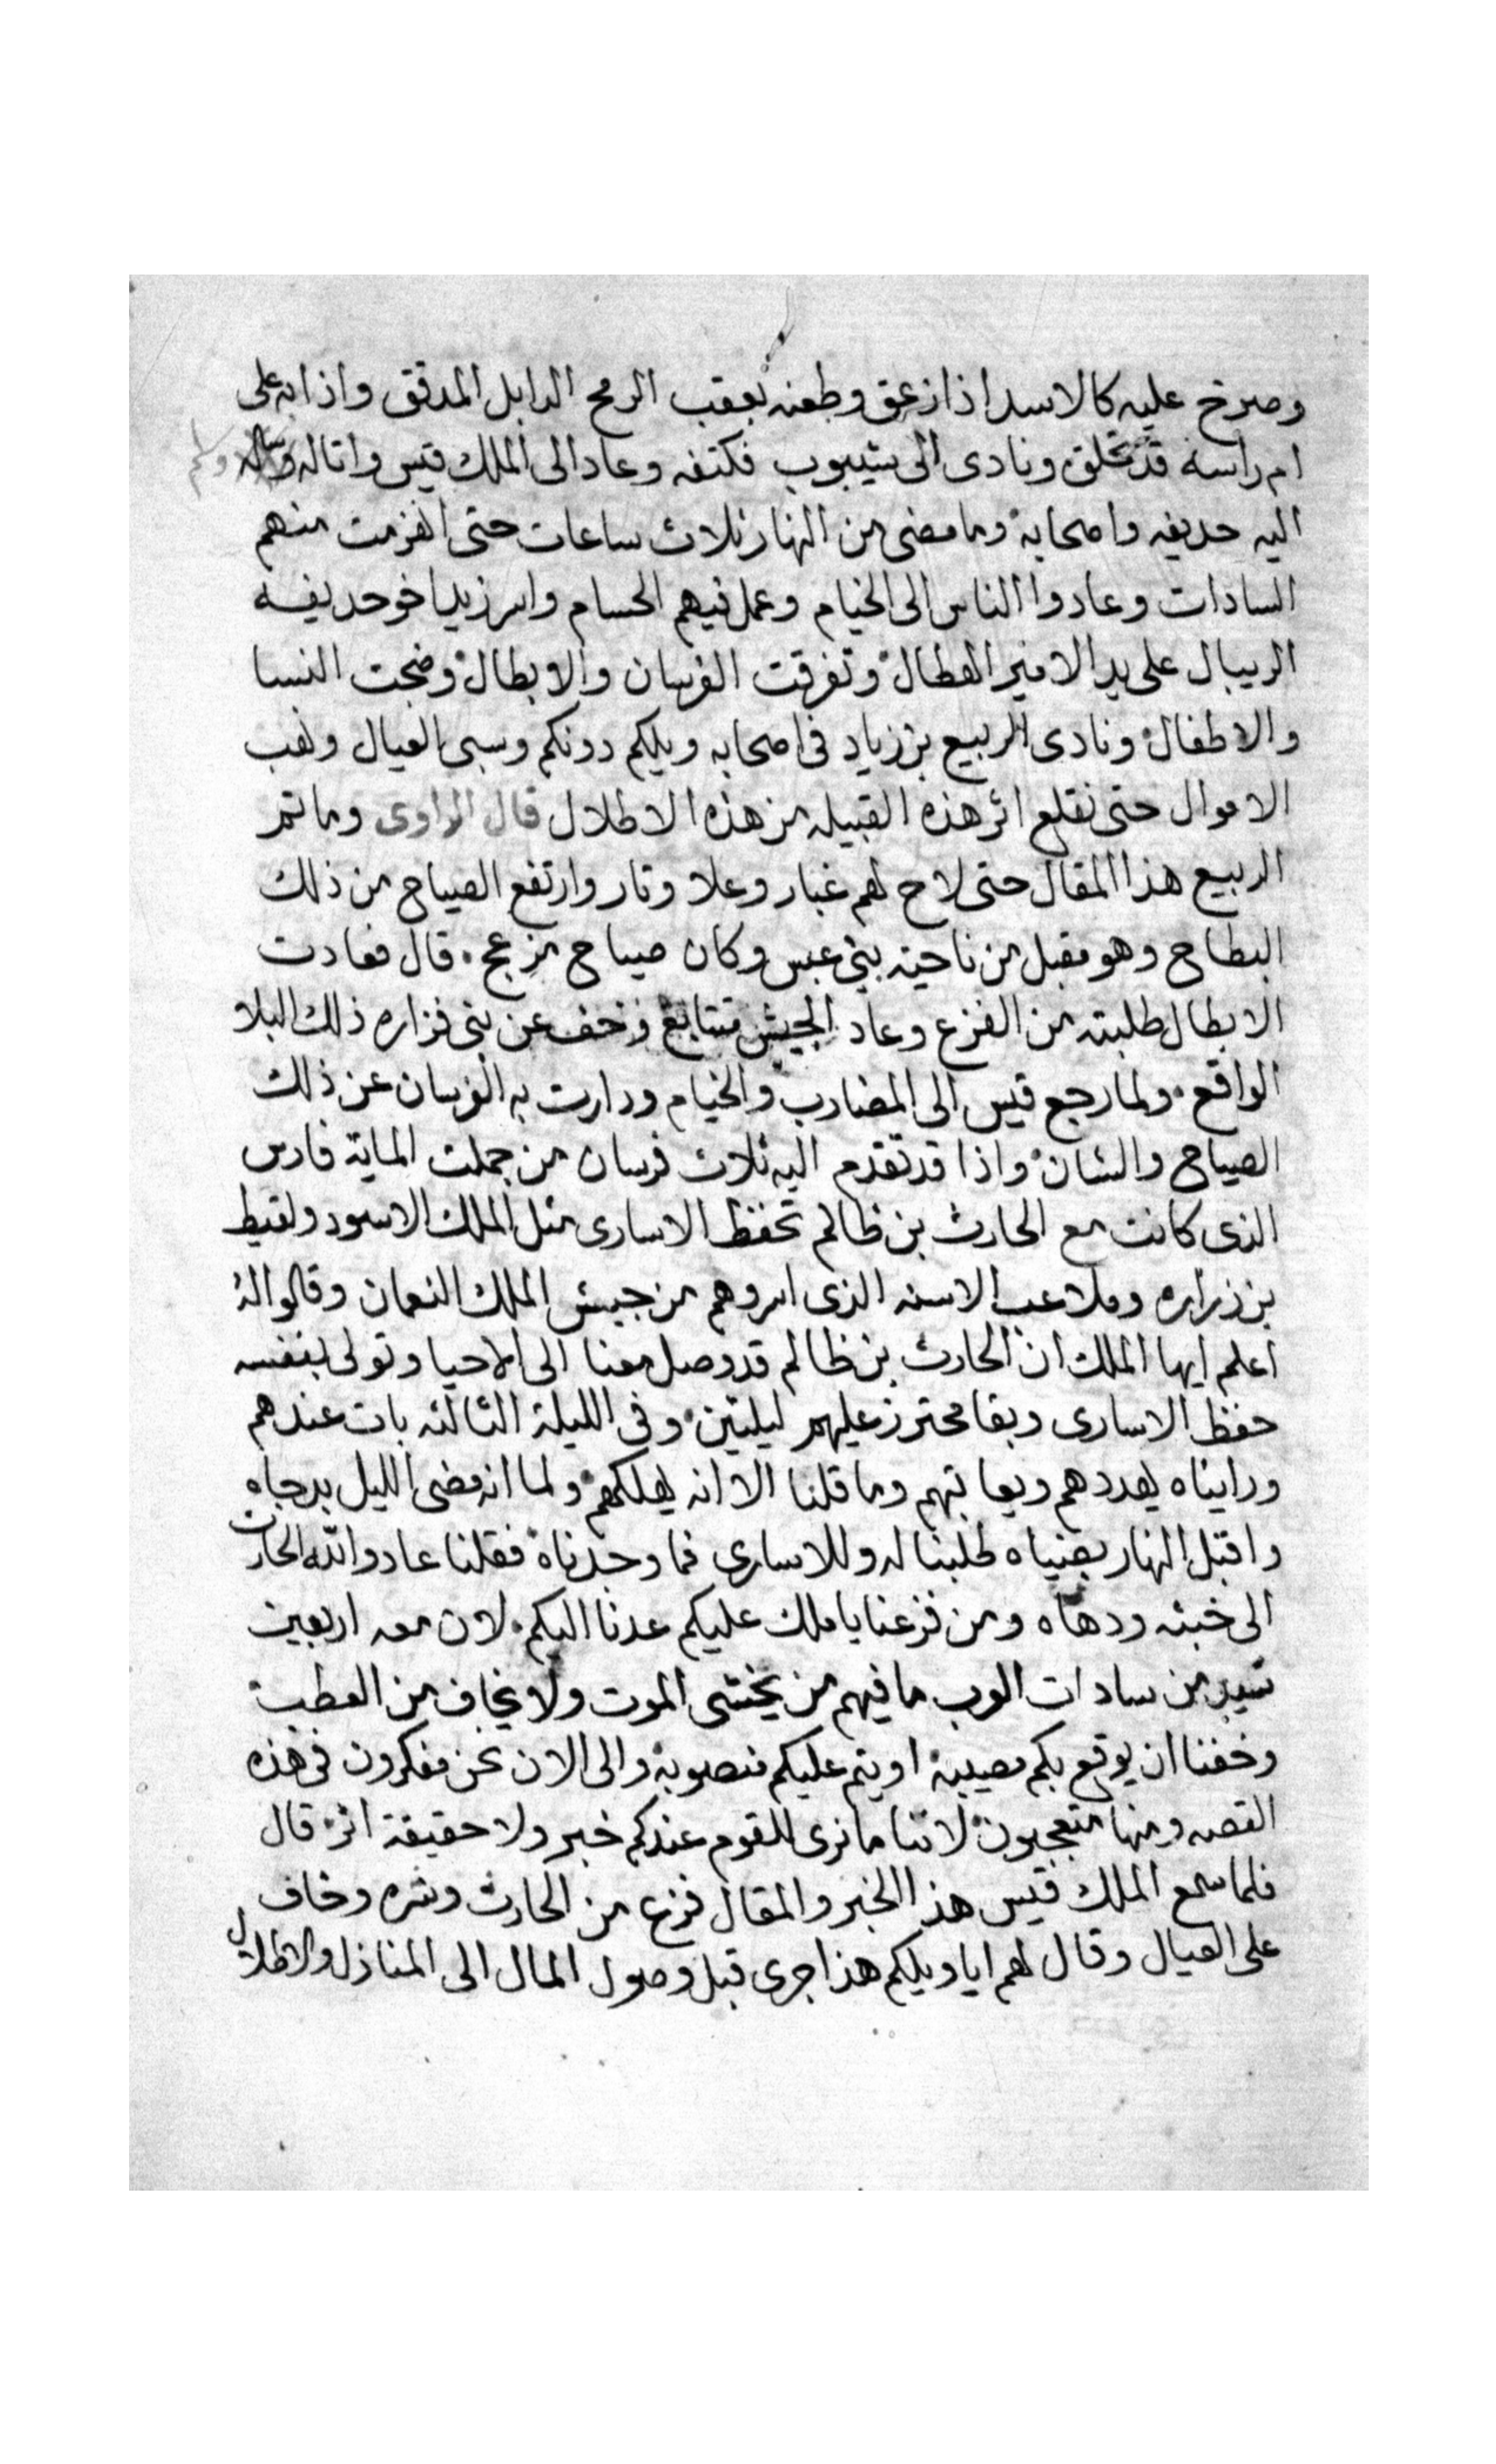 وصرخ عليه كالاسد اذا زعق وطعنه بعقب الرمح الدابل المدقق واذا به على
ام راسه قد تخلق ونادى الى شيبوب فكتفه وعاد الى الملك قيس واتاله وسلم
اليه حديفه واصحابه وما مضى من النهار ثلاث ساعات حتى انهزمت منهم
السادات وعادوا الناس الى الخيام وعمل فيهم الحسام واسر زيد اخو حديفه
الريبال على يد الامير الهطال وتفرقت الفرسان والابطال وضجت النسا
والاطفال ونادى الربيع بن زياد في اصحابه ويلكم دونكم وسبى العيال ونهب
الاموال حتى نقلع اثر هذه القبيله من هذه الاطلال قال الراوى وما تمر
الربيع هذا المقال حتى لاح لهم غبار وعلا وتار وارتفع الصياح من ذلك
البطاح وهو مقبل من ناحية بني عبس وكان صياح مزعج قال فعادت
الابطال طلبته من الفزع وعاد الجيش متتابع وخف عن بنى فزاره ذلك البلا
الواقع ولما رجع قيس الى المضارب والخيام ودارت به الفرسان عن ذلك
الصياح والشان واذا قد تقدم اليه ثلاث فرسان من جملت الماية فارس
الذى كانت مع الحارث بن ظالم تحفظ الاسارى مثل الملك الاسود ولقيط
بن زراره وملاعب الاسنه الذى اسروهم من جيش الملك النعمان وقالوا له
اعلم ايها الملك ان الحارث بن ظالم قد وصل معنا الى الاحيا وتولى بنفسه
حفظ الاسارى وبقا محترز عليهم ليلتين وفى الليلة الثالثه بات عندهم
ورايناه يهددهم ويعاتبهم وما قلنا الا انه يهلكهم ولما انه مضى الليل بدجاه
واقبل النهار بضياه طلبنا له وللاسارى فما وجدناه فقلنا عاد والله الحارث
الى خبثه ودهاه ومن فزعنا يا ملك عليكم عدنا اليكم لان معه اربعين
سيد من سادات العرب ما فيهم من يخشى الموت ولا يخاف من العطب
وخفنا ان يوقع بكم مصيبة او يتم عليكم منصوبة والى الان نحن مفكرون فى هذه
القصه ومنها متعجبون لاننا ما نرى للقوم عندكم خبر ولا حقيقة اثر قال
فلما سمع الملك قيس هذا الخبر والمقال فزع من الحارث وشره وخاف
على العيال وقال لهم ايا ويلكم هذا جرى قبل وصول المال الى المنازل والاطلال